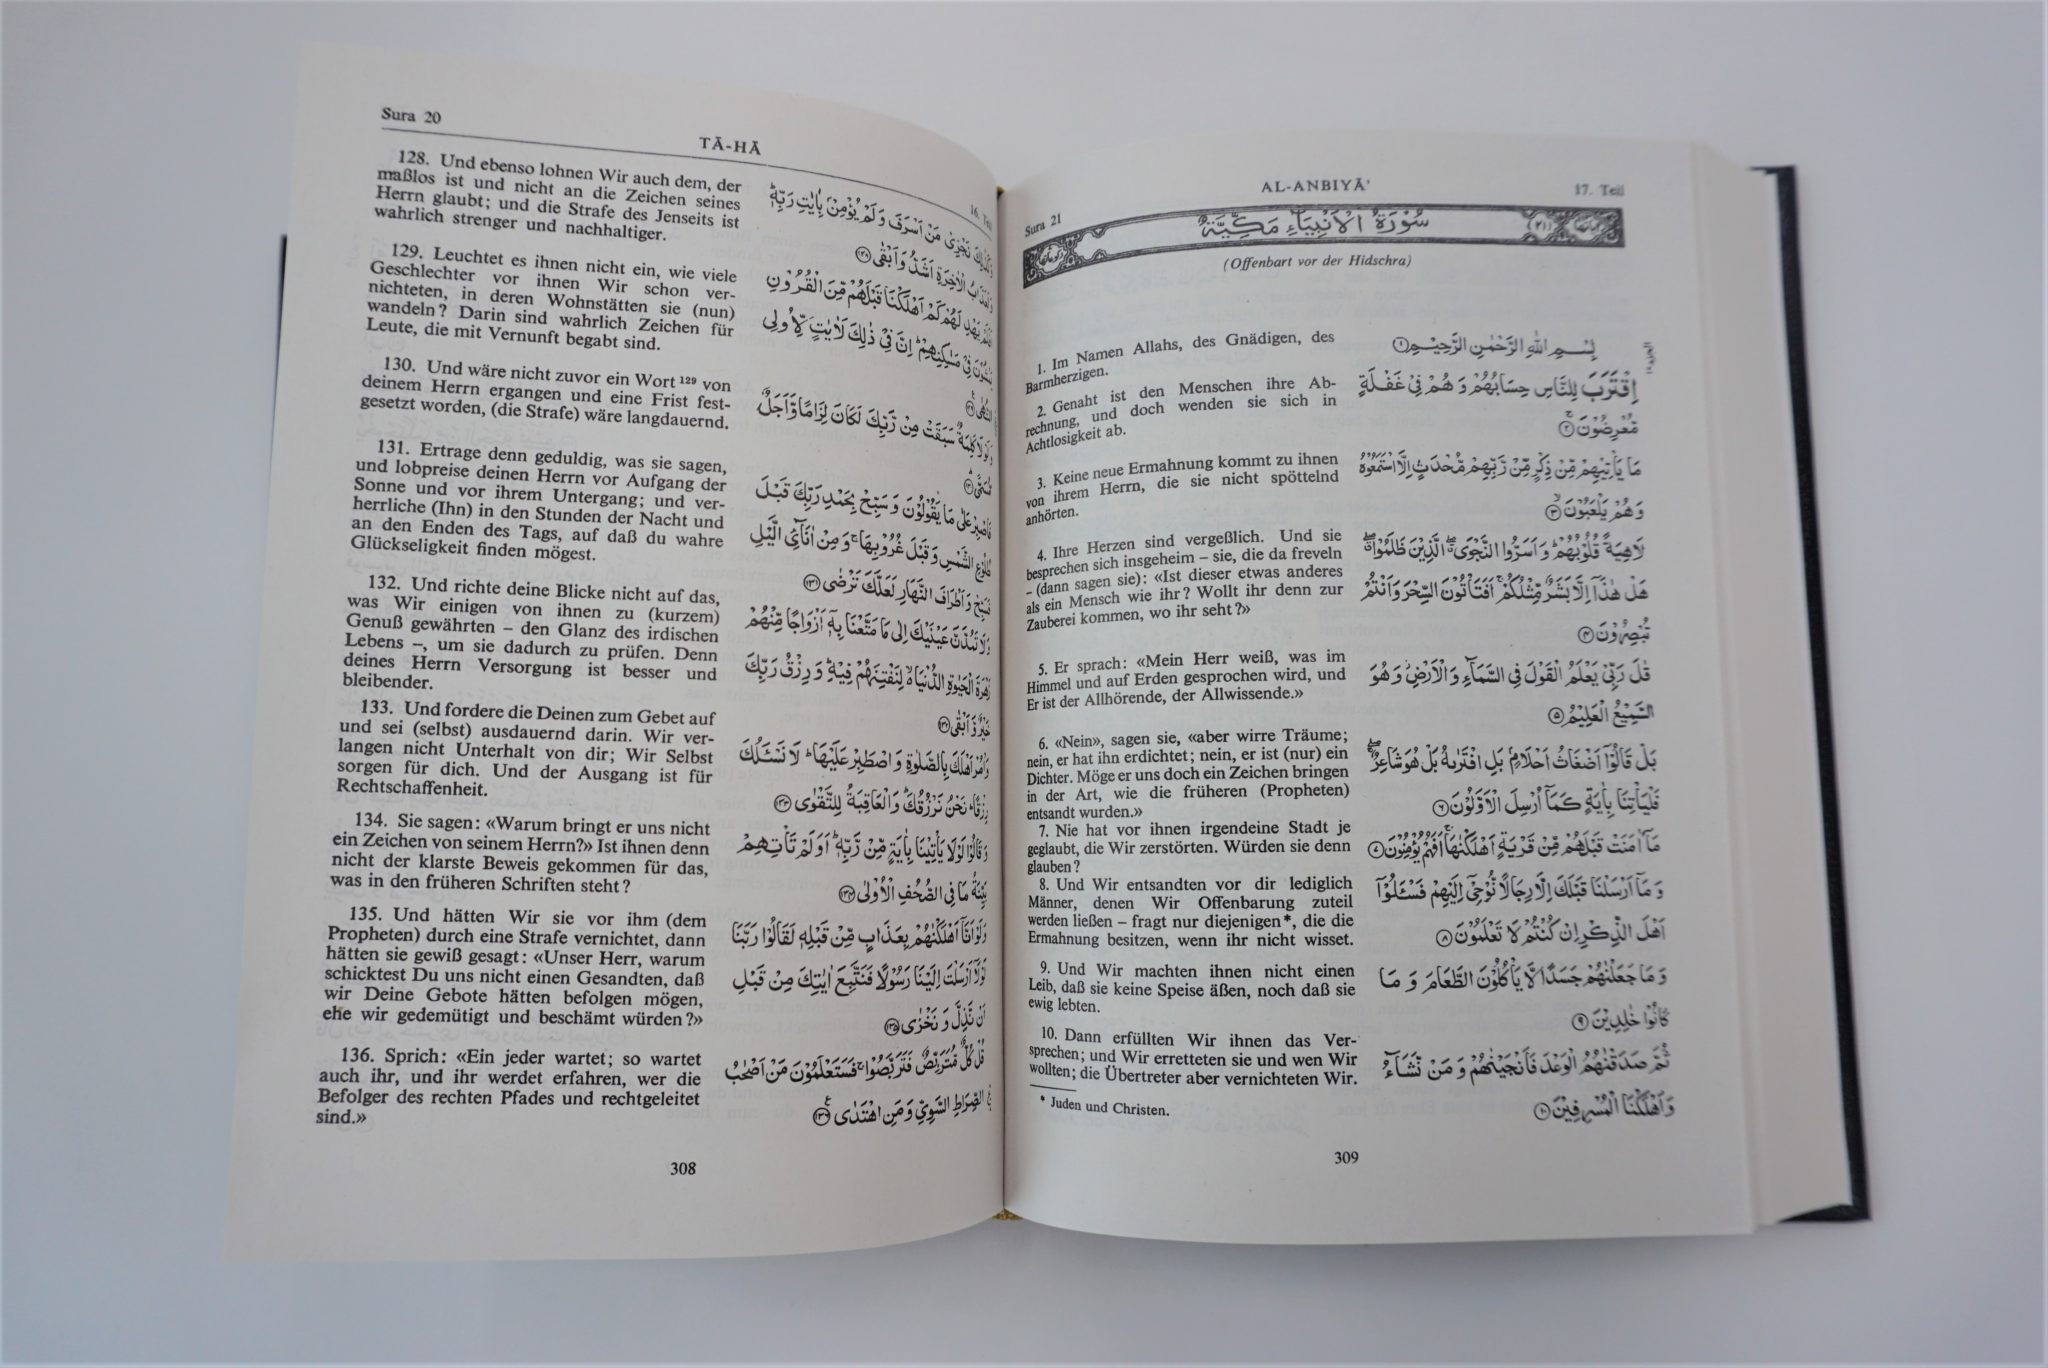 Sura 20
TĀ-HĀ
16. Teil
128. Und ebenso lohnen Wir auch dem, der
maßlos ist und nicht an die Zeichen seines
Herrn glaubt; und die Strafe des Jenseits ist
wahrlich strenger und nachhaltiger.
129. Leuchtet es ihnen nicht ein, wie viele
Geschlechter vor ihnen Wir schon ver-
nichteten, in deren Wohnstätten sie (nun)
wandeln? Darin sind wahrlich Zeichen für
Leute, die mit Vernunft begabt sind.
130. Und wäre nicht zuvor ein Wort ¹²⁹ von
deinem Herrn ergangen und eine Frist fest-
gesetzt worden, (die Strafe) wäre langdauernd.
131. Ertrage denn geduldig, was sie sagen,
und lobpreise deinen Herrn vor Aufgang der
Sonne und vor ihrem Untergang; und ver-
herrliche (Ihn) in den Stunden der Nacht und
an den Enden des Tags, auf daß du wahre
Glückseligkeit finden mögest.
132. Und richte deine Blicke nicht auf das,
was Wir einigen von ihnen zu (kurzem)
Genuß gewährten – den Glanz des irdischen
Lebens –, um sie dadurch zu prüfen. Denn
deines Herrn Versorgung ist besser und
bleibender.
133. Und fordere die Deinen zum Gebet auf
und sei (selbst) ausdauernd darin. Wir ver-
langen nicht Unterhalt von dir; Wir Selbst
sorgen für dich. Und der Ausgang ist für
Rechtschaffenheit.
134. Sie sagen: «Warum bringt er uns nicht
ein Zeichen von seinem Herrn?» Ist ihnen denn
nicht der klarste Beweis gekommen für das,
was in den früheren Schriften steht?
135. Und hätten Wir sie vor ihm (dem
Propheten) durch eine Strafe vernichtet, dann
hätten sie gewiß gesagt: «Unser Herr, warum
schicktest Du uns nicht einen Gesandten, daß
wir Deine Gebote hätten befolgen mögen,
ehe wir gedemütigt und beschämt würden?»
136. Sprich: «Ein jeder wartet; so wartet
auch ihr, und ihr werdet erfahren, wer die
Befolger des rechten Pfades und rechtgeleitet
sind.»
وَكَذٰلِكَ نَجْزِىْ مَنْ اَسْرَفَ وَلَمْ يُؤْمِنْۢ بِاٰيٰتِ رَبِّهٖ ؕ
وَلَعَذَابُ الْاٰخِرَةِ اَشَدُّ وَاَبْقٰى ۝۱۲۸
اَفَلَمْ يَهْدِ لَهُمْ كَمْ اَهْلَكْنَا قَبْلَهُمْ مِّنَ الْقُرُوْنِ
يَمْشُوْنَ فِىْ مَسٰكِنِهِمْ ؕ اِنَّ فِىْ ذٰلِكَ لَاٰيٰتٍ لِّاُولِى
النُّهٰى ۝۱۲۹
وَلَوْلَا كَلِمَةٌ سَبَقَتْ مِنْ رَّبِّكَ لَكَانَ لِزَامًا وَّاَجَلٌ
مُّسَمًّى ۝۱۳۰
فَاصْبِرْ عَلٰى مَا يَقُوْلُوْنَ وَسَبِّحْ بِحَمْدِ رَبِّكَ قَبْلَ
طُلُوْعِ الشَّمْسِ وَقَبْلَ غُرُوْبِهَا ۚ وَمِنْ اٰنَآئِ الَّيْلِ
فَسَبِّحْ وَاَطْرَافَ النَّهَارِ لَعَلَّكَ تَرْضٰى ۝۱۳۱
وَلَا تَمُدَّنَّ عَيْنَيْكَ اِلٰى مَا مَتَّعْنَا بِهٖٓ اَزْوَاجًا مِّنْهُمْ
زَهْرَةَ الْحَيٰوةِ الدُّنْيَا ۙ لِنَفْتِنَهُمْ فِيْهِ ؕ وَرِزْقُ رَبِّكَ
خَيْرٌ وَّاَبْقٰى ۝۱۳۲
وَاْمُرْ اَهْلَكَ بِالصَّلٰوةِ وَاصْطَبِرْ عَلَيْهَا ؕ لَا نَسْـَٔلُكَ
رِزْقًا ؕ نَحْنُ نَرْزُقُكَ ؕ وَالْعَاقِبَةُ لِلتَّقْوٰى ۝۱۳۳
وَقَالُوْا لَوْلَا يَأْتِيْنَا بِاٰيَةٍ مِّنْ رَّبِّهٖ ؕ اَوَلَمْ تَأْتِهِمْ
بَيِّنَةُ مَا فِى الصُّحُفِ الْاُوْلٰى ۝۱۳۴
وَلَوْ اَنَّآ اَهْلَكْنٰهُمْ بِعَذَابٍ مِّنْ قَبْلِهٖ لَقَالُوْا رَبَّنَا
لَوْلَآ اَرْسَلْتَ اِلَيْنَا رَسُوْلًا فَنَتَّبِعَ اٰيٰتِكَ مِنْ قَبْلِ
اَنْ نَّذِلَّ وَنَخْزٰى ۝۱۳۵
قُلْ كُلٌّ مُّتَرَبِّصٌ فَتَرَبَّصُوْا ۚ فَسَتَعْلَمُوْنَ مَنْ اَصْحٰبُ
الصِّرَاطِ السَّوِيِّ وَمَنِ اهْتَدٰى ۝۱۳۶
308
Sura 21
AL-ANBIYĀ'
17. Teil
سُوْرَةُ الْاَنْبِيَآءِ مَكِّيَّةٌ
(۲۱)
(Offenbart vor der Hidschra)
1. Im Namen Allahs, des Gnädigen, des
Barmherzigen.
2. Genaht ist den Menschen ihre Ab-
rechnung, und doch wenden sie sich in
Achtlosigkeit ab.
3. Keine neue Ermahnung kommt zu ihnen
von ihrem Herrn, die sie nicht spöttelnd
anhörten.
4. Ihre Herzen sind vergeßlich. Und sie
besprechen sich insgeheim – sie, die da freveln
– (dann sagen sie): «Ist dieser etwas anderes
als ein Mensch wie ihr? Wollt ihr denn zur
Zauberei kommen, wo ihr seht?»
5. Er sprach: «Mein Herr weiß, was im
Himmel und auf Erden gesprochen wird, und
Er ist der Allhörende, der Allwissende.»
6. «Nein», sagen sie, «aber wirre Träume;
nein, er hat ihn erdichtet; nein, er ist (nur) ein
Dichter. Möge er uns doch ein Zeichen bringen
in der Art, wie die früheren (Propheten)
entsandt wurden.»
7. Nie hat vor ihnen irgendeine Stadt je
geglaubt, die Wir zerstörten. Würden sie denn
glauben?
8. Und Wir entsandten vor dir lediglich
Männer, denen Wir Offenbarung zuteil
werden ließen – fragt nur diejenigen*, die die
Ermahnung besitzen, wenn ihr nicht wisset.
9. Und Wir machten ihnen nicht einen
Leib, daß sie keine Speise äßen, noch daß sie
ewig lebten.
10. Dann erfüllten Wir ihnen das Ver-
sprechen; und Wir erretteten sie und wen Wir
wollten; die Übertreter aber vernichteten Wir.
* Juden und Christen.
بِسْمِ اللهِ الرَّحْمٰنِ الرَّحِيْمِ ۝۱
اِقْتَرَبَ لِلنَّاسِ حِسَابُهُمْ وَهُمْ فِىْ غَفْلَةٍ
مُّعْرِضُوْنَ ۝۲
مَا يَأْتِيْهِمْ مِّنْ ذِكْرٍ مِّنْ رَّبِّهِمْ مُّحْدَثٍ اِلَّا اسْتَمَعُوْهُ
وَهُمْ يَلْعَبُوْنَ ۝۳
لَاهِيَةً قُلُوْبُهُمْ ؕ وَاَسَرُّوا النَّجْوَى ۖ الَّذِيْنَ ظَلَمُوْا ۖ
هَلْ هٰذَآ اِلَّا بَشَرٌ مِّثْلُكُمْ ۚ اَفَتَأْتُوْنَ السِّحْرَ وَاَنْتُمْ
تُبْصِرُوْنَ ۝۴
قٰلَ رَبِّىْ يَعْلَمُ الْقَوْلَ فِى السَّمَآءِ وَالْاَرْضِ ۡ وَهُوَ
السَّمِيْعُ الْعَلِيْمُ ۝۵
بَلْ قَالُوْٓا اَضْغَاثُ اَحْلَامٍۢ بَلِ افْتَرٰىهُ بَلْ هُوَ شَاعِرٌ ۖ
فَلْيَأْتِنَا بِاٰيَةٍ كَمَآ اُرْسِلَ الْاَوَّلُوْنَ ۝۶
مَآ اٰمَنَتْ قَبْلَهُمْ مِّنْ قَرْيَةٍ اَهْلَكْنٰهَا ۚ اَفَهُمْ يُؤْمِنُوْنَ ۝۷
وَمَآ اَرْسَلْنَا قَبْلَكَ اِلَّا رِجَالًا نُّوْحِىْٓ اِلَيْهِمْ فَسْـَٔلُوْٓا
اَهْلَ الذِّكْرِ اِنْ كُنْتُمْ لَا تَعْلَمُوْنَ ۝۸
وَمَا جَعَلْنٰهُمْ جَسَدًا لَّا يَأْكُلُوْنَ الطَّعَامَ وَمَا
كَانُوْا خٰلِدِيْنَ ۝۹
ثُمَّ صَدَقْنٰهُمُ الْوَعْدَ فَاَنْجَيْنٰهُمْ وَمَنْ نَّشَآءُ
وَاَهْلَكْنَا الْمُسْرِفِيْنَ ۝۱۰
309